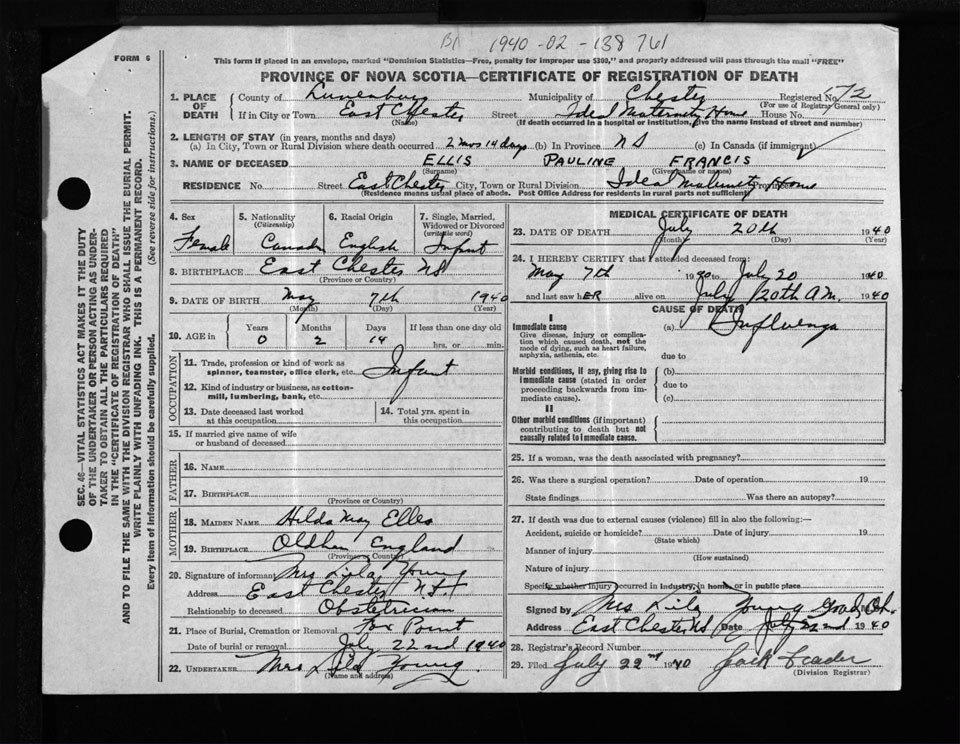 1940-02-138761
FORM 6
This form if placed in an envelope, marked "Dominion Statistics—Free, penalty for improper use $300," and properly addressed will pass through the mail "FREE"
PROVINCE OF NOVA SCOTIA—CERTIFICATE OF REGISTRATION OF DEATH
1. PLACE OF DEATH
County of Lunenburg Municipality of Chester Registered No. 172
(For use of Registrar General only)
If in City or Town East Chester Street Ideal Maternity Home House No.
(Name) (If death occurred in a hospital or institution, give the name instead of street and number)
2. LENGTH OF STAY (in years, months and days)
(a) In City, Town or Rural Division where death occurred 2 mos 14 days (b) In Province NS (c) In Canada (if immigrant)
3. NAME OF DECEASED ELLIS PAULINE FRANCIS
(Surname) (Given name or names)
RESIDENCE No. Street East Chester City, Town or Rural Division Ideal Maternity Home Province
(Residence means usual place of abode. Post Office address for residents in rural parts not sufficient)
4. Sex
Female
5. Nationality
(Citizenship)
Canada
6. Racial Origin
English
7. Single, Married, Widowed or Divorced
(write the word)
Infant
8. BIRTHPLACE East Chester NS
(Province or Country)
9. DATE OF BIRTH May 7th 1940
(Month) (Day) (Year)
10. AGE in
Years Months Days If less than one day old
0 2 14 hrs. or min.
OCCUPATION
11. Trade, profession or kind of work as
spinner, teamster, office clerk, etc. Infant
12. Kind of industry or business, as cotton-
mill, lumbering, bank, etc.
13. Date deceased last worked
at this occupation
14. Total yrs. spent in
this occupation
15. If married give name of wife
or husband of deceased
FATHER
16. NAME
17. BIRTHPLACE
(Province or Country)
MOTHER
18. MAIDEN NAME Hilda May Elles
19. BIRTHPLACE Oldham England
(Province or Country)
20. Signature of informant Mrs Lila Young
Address East Chester N.S.
Relationship to deceased Obstetrician
21. Place of Burial, Cremation or Removal Fox Point
Date of burial or removal July 22nd 1940
22. UNDERTAKER Mrs Lila Young
(Name and address)
MEDICAL CERTIFICATE OF DEATH
23. DATE OF DEATH July 20th 1940
(Month) (Day) (Year)
24. I HEREBY CERTIFY that I attended deceased from:
May 7th 1940 to July 20 1940
and last saw hER alive on July 20th A.M. 1940
CAUSE OF DEATH
I
Immediate cause
Give disease, injury or complica-
tion which caused death, not the
mode of dying, such as heart failure,
asphyxia, asthenia, etc.
(a) Influenza
due to
Morbid conditions, if any, giving rise to
immediate cause (stated in order
proceeding backwards from im-
mediate cause).
(b)
due to
(c)
II
Other morbid conditions (if important)
contributing to death but not
causally related to immediate cause.
25. If a woman, was the death associated with pregnancy?
26. Was there a surgical operation? Date of operation 19
State findings Was there an autopsy?
27. If death was due to external causes (violence) fill in also the following:—
Accident, suicide or homicide? Date of injury 19
(State which)
Manner of injury
(How sustained)
Nature of injury
Specify whether injury occurred in industry, in home, or in public place
Signed by Mrs Lila Young
Address East Chester NS Date July 22nd 1940
28. Registrar's Record Number
29. Filed July 22nd 1940 Jack Leader
(Division Registrar)
SEC. 46—VITAL STATISTICS ACT MAKES IT THE DUTY
OF THE UNDERTAKER OR PERSON ACTING AS UNDER-
TAKER TO OBTAIN ALL THE PARTICULARS REQUIRED
IN THE "CERTIFICATE OF REGISTRATION OF DEATH"
AND TO FILE THE SAME WITH THE DIVISION REGISTRAR WHO SHALL ISSUE THE BURIAL PERMIT.
WRITE PLAINLY WITH UNFADING INK. THIS IS A PERMANENT RECORD.
Every item of information should be carefully supplied. (See reverse side for instructions.)